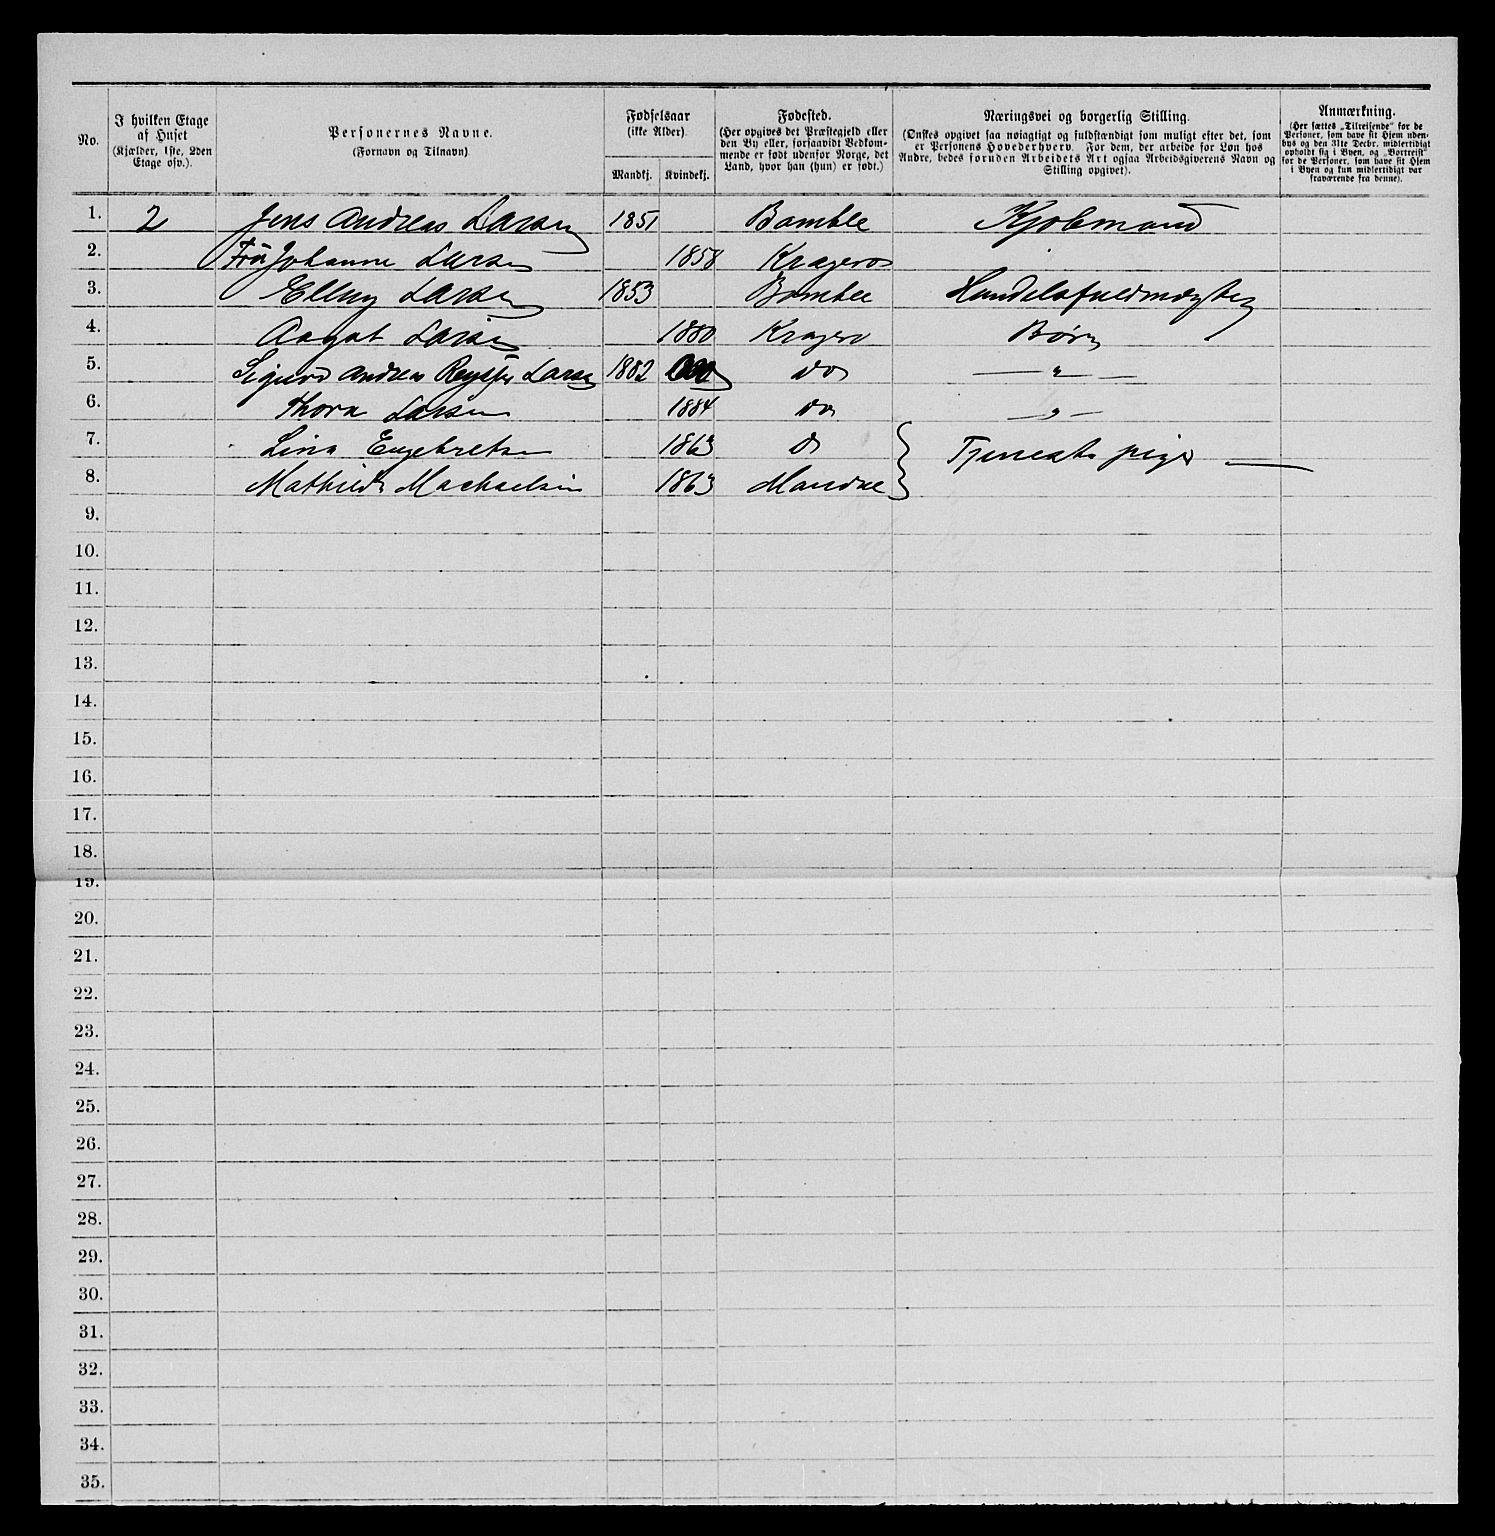 No.
I hvilken Etage af Huset (Kjælder, 1ste, 2den Etage osv.).
Personernes Navne. (Fornavn og Tilnavn)
Fødselsaar (ikke Alder).
Mandkj. Kvindekj.
Fødested. (Her opgives det Præstegjeld eller den By eller, forsaavidt Vedkommende er født udenfor Norge, det Land, hvor han (hun) er født.)
Næringsvei og borgerlig Stilling. (Ønskes opgivet saa nøiagtigt og fuldstændigt som muligt efter det, som er Personens Hovederhverv. For dem, der arbeide for Løn hos Andre, bedes foruden Arbeidets Art ogsaa Arbeidsgiverens Navn og Stilling opgivet).
Anmærkning. (Her sættes „Tilreisende“ for de Personer, som have sit Hjem udenbys og den 31te Decbr. midlertidigt opholdt sig i Byen, og „Bortreist“ for de Personer, som have sit Hjem i Byen og kun midlertidigt var fraværende fra denne).
1. 2 Jens Andreas Larsen 1851 Bamble Kjøbmand
2. Fru Johanne Larsen 1858 Kragerø
3. Larsen 1853 Bamble Handelsfuldmægtig
4. Larsen 1880 Kragerø Børn
5. Sigurd Andreas Larsen 1882 do — " —
6. Thora Larsen 1884 do — " —
7. Lina Engebretsen 1863 do Tjenestepiger —
8. Mathilde 1863 Mandal
9.
10.
11.
12.
13.
14.
15.
16.
17.
18.
19.
20.
21.
22.
23.
24.
25.
26.
27.
28.
29.
30.
31.
32.
33.
34.
35.